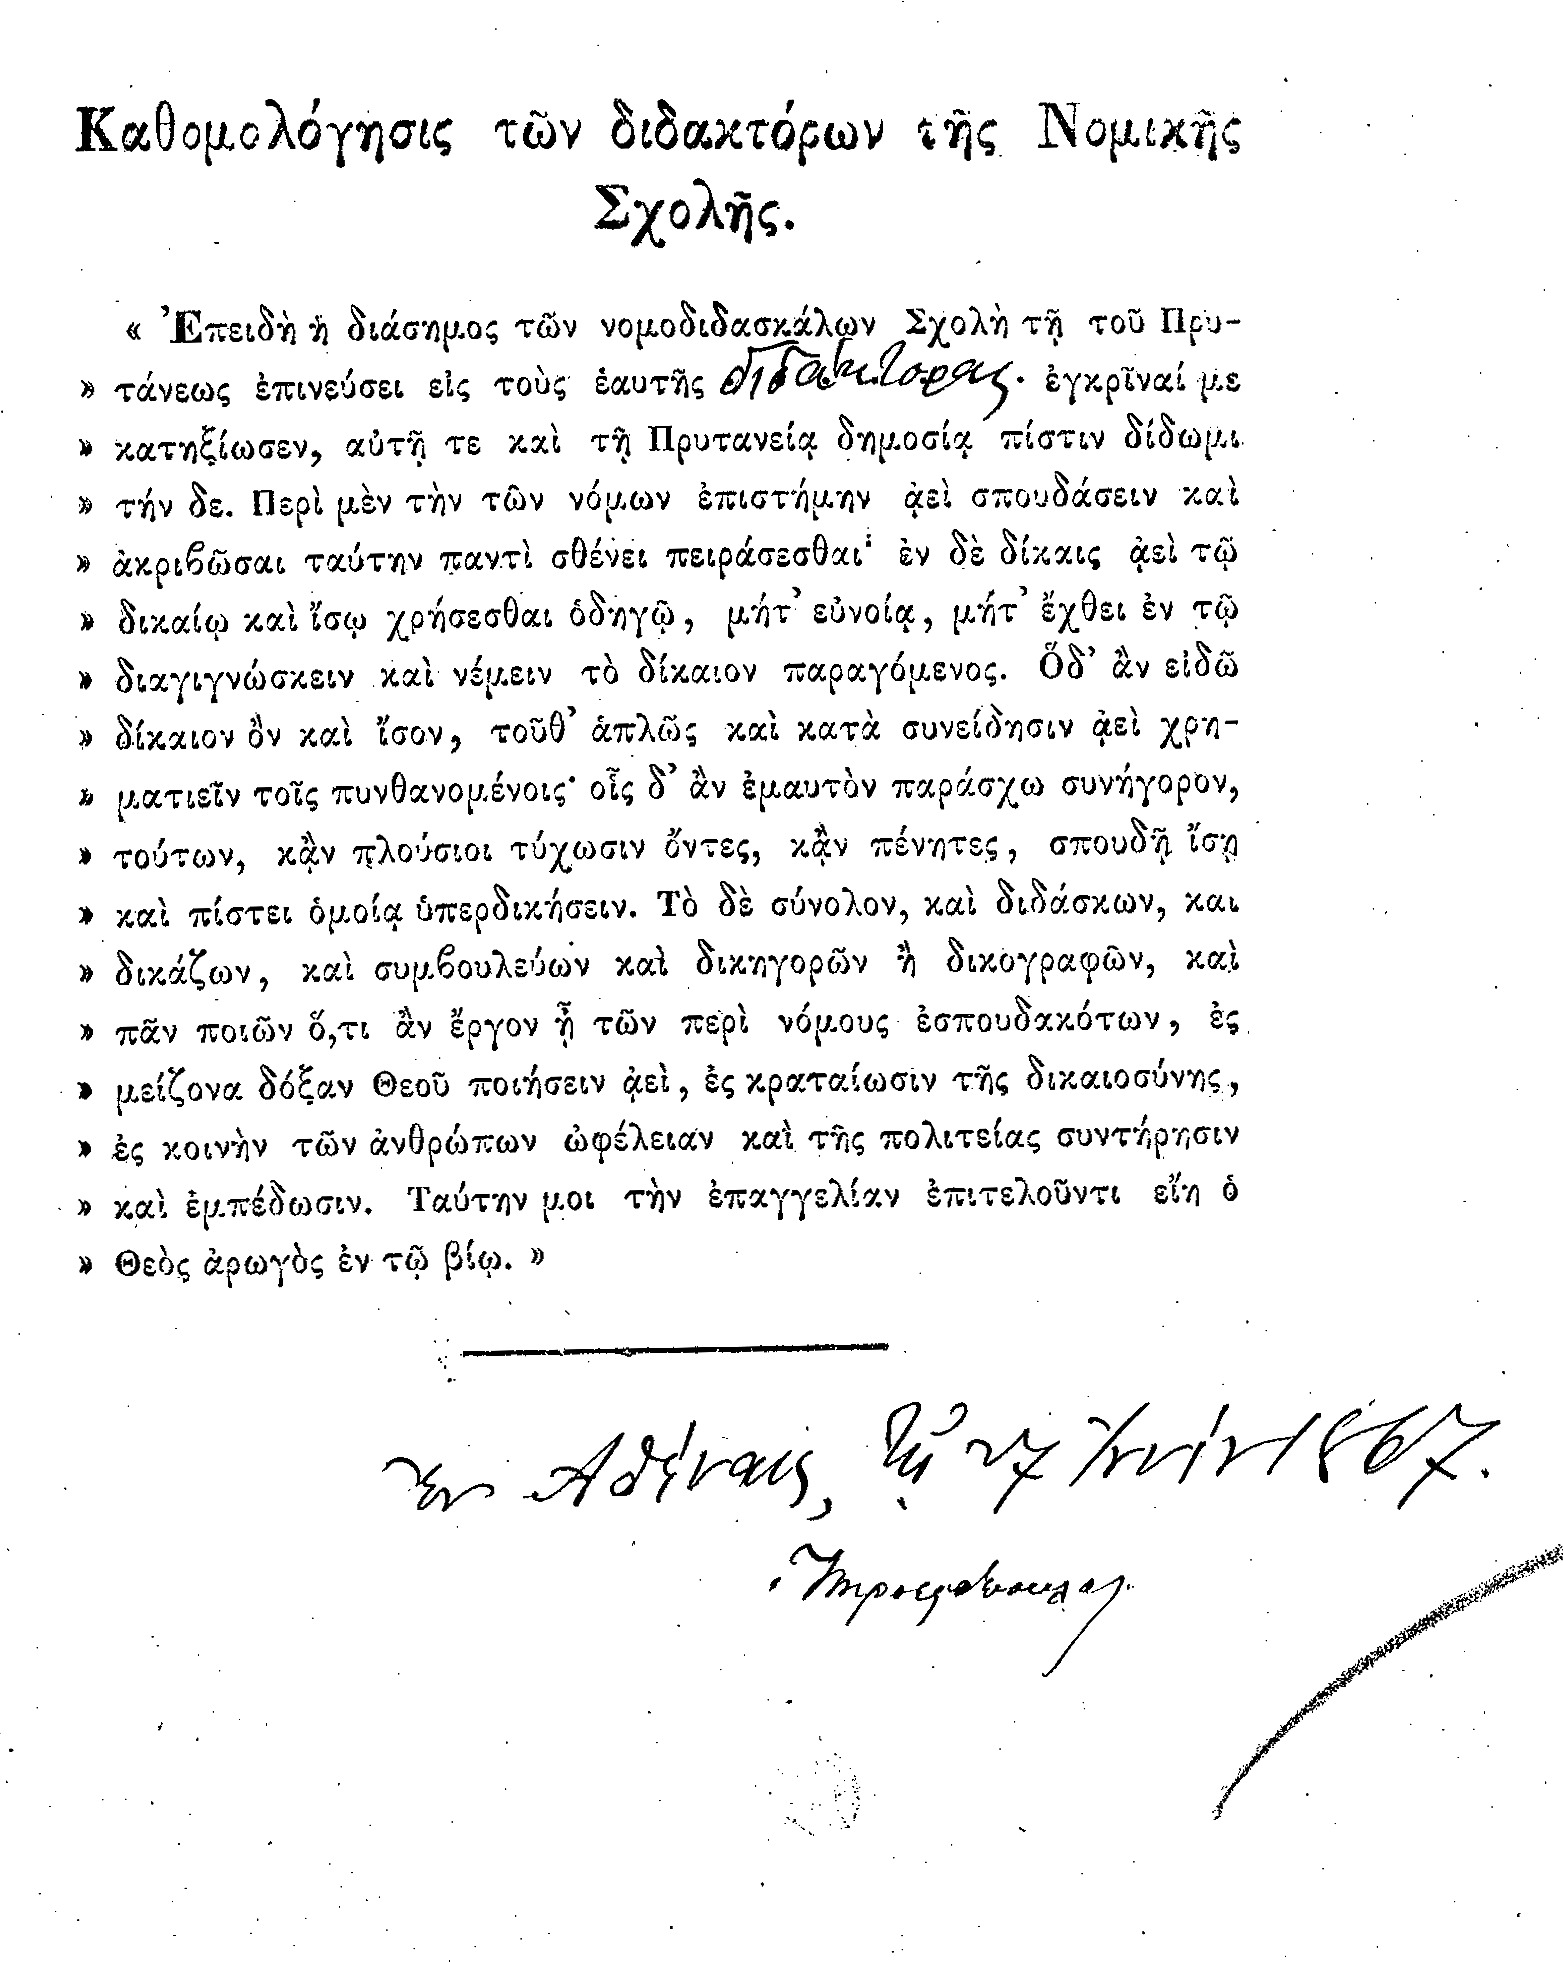 Καθομολόγησις τῶν διδακτόρων τῆς Νομικῆς
Σχολῆς.
« Ἐπειδὴ ἡ διάσημος τῶν νομοδιδασκάλων Σχολὴ τῇ τοῦ Πρυ-
» τάνεως ἐπινεύσει εἰς τοὺς ἑαυτῆς διδάκτορας ἐγκρῖναί με
» κατηξίωσεν, αὐτῇ τε καὶ τῇ Πρυτανείᾳ δημοσίᾳ πίστιν δίδωμι
» τήν δε. Περὶ μὲν τὴν τῶν νόμων ἐπιστήμην ᾀεὶ σπουδάσειν καὶ
» ἀκριβῶσαι ταύτην παντὶ σθένει πειράσεσθαι· ἐν δὲ δίκαις ᾀεὶ τῷ
» δικαίῳ καὶ ἴσῳ χρήσεσθαι ὁδηγῷ, μήτ’ εὐνοίᾳ, μήτ’ ἔχθει ἐν τῷ
» διαγιγνώσκειν καὶ νέμειν τὸ δίκαιον παραγόμενος. Ὅδ’ ἂν εἰδῶ
» δίκαιον ὂν καὶ ἴσον, τοῦθ’ ἁπλῶς καὶ κατὰ συνείδησιν ᾀεὶ χρη-
» ματιεῖν τοῖς πυνθανομένοις· οἷς δ’ ἂν ἐμαυτὸν παράσχω συνήγορον,
» τούτων, κᾂν πλούσιοι τύχωσιν ὄντες, κᾂν πένητες, σπουδῇ ἴσῃ
» καὶ πίστει ὁμοίᾳ ὑπερδικήσειν. Τὸ δὲ σύνολον, καὶ διδάσκων, και
» δικάζων, καὶ συμβουλεύων καὶ δικηγορῶν ἢ δικογραφῶν, καὶ
» πᾶν ποιῶν ὅ,τι ἂν ἔργον ᾖ τῶν περὶ νόμους ἐσπουδακότων, ἐς
» μείζονα δόξαν Θεοῦ ποιήσειν ᾀεὶ, ἐς κραταίωσιν τῆς δικαιοσύνης,
» ἐς κοινὴν τῶν ἀνθρώπων ὠφέλειαν καὶ τῆς πολιτείας συντήρησιν
» καὶ ἐμπέδωσιν. Ταύτην μοι τὴν ἐπαγγελίαν ἐπιτελοῦντι εἴη ὁ
» Θεὸς ἀρωγὸς ἐν τῷ βίῳ. »
Ἐν Ἀθήναις, τῇ 27 1867.